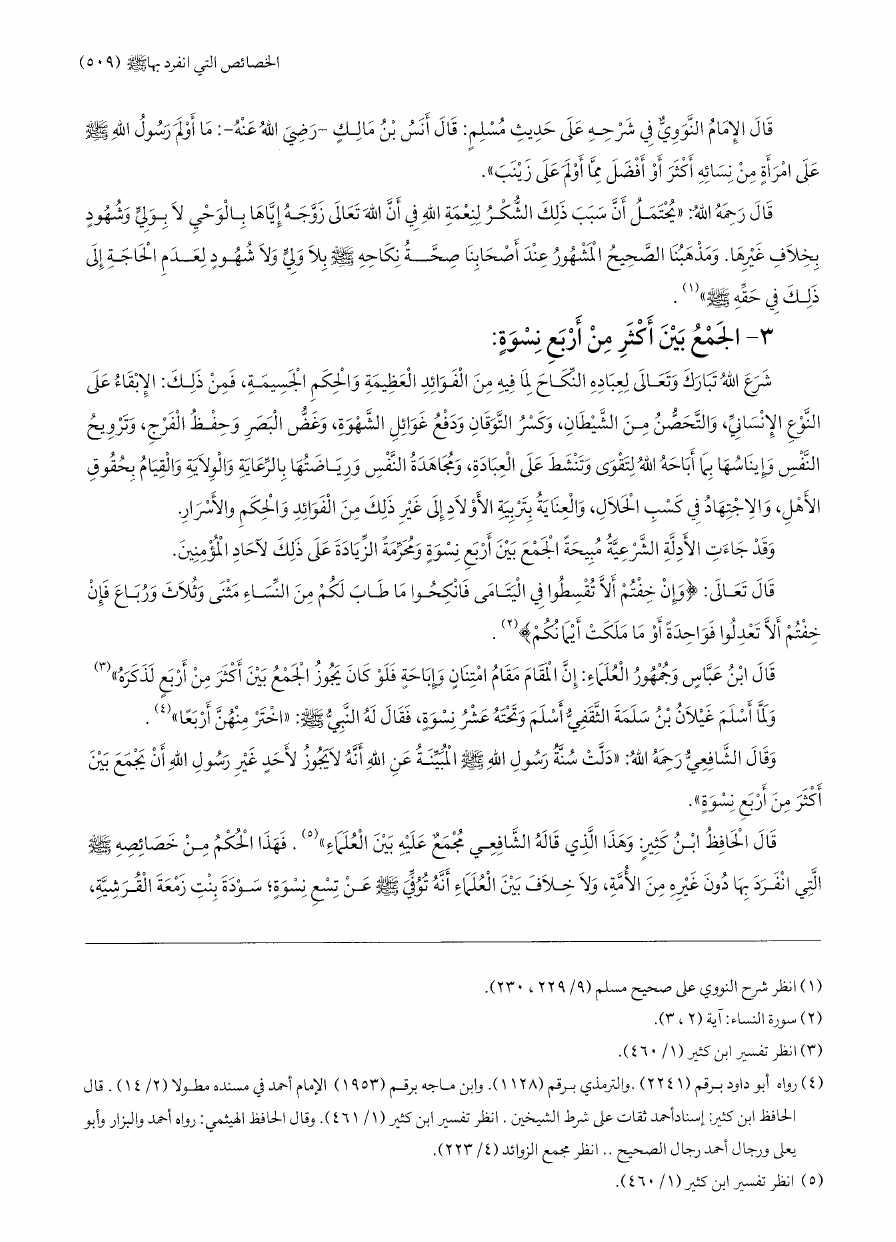 الخصائص التي انفرد بها ﷺ (٥٠٩)
قَالَ الإِمَامُ النَّوَوِيُّ فِي شَرْحِهِ عَلَى حَدِيثِ مُسْلِمٍ: قَالَ أَنَسُ بْنُ مَالِكٍ -رَضِيَ اللهُ عَنْهُ-: مَا أَوْلَمَ رَسُولُ اللهِ ﷺ
عَلَى امْرَأَةٍ مِنْ نِسَائِهِ أَكْثَرَ أَوْ أَفْضَلَ مِمَّا أَوْلَمَ عَلَى زَيْنَبَ».
قَالَ رَحِمَهُ اللهُ: «يُحْتَمَلُ أَنَّ سَبَبَ ذَلِكَ الشُّكْرُ لِنِعْمَةِ اللهِ فِي أَنَّ اللهَ تَعَالَى زَوَّجَهُ إِيَّاهَا بِالْوَحْيِ لاَ بِوَلِيٍّ وَشُهُودٍ
بِخِلاَفِ غَيْرِهَا. وَمَذْهَبُنَا الصَّحِيحُ الْمَشْهُورُ عِنْدَ أَصْحَابِنَا صِحَّةُ نِكَاحِهِ ﷺ بِلاَ وَلِيٍّ وَلاَ شُهُودٍ لِعَدَمِ الْحَاجَةِ إِلَى
ذَلِكَ فِي حَقِّهِ ﷺ»(١).
٣- الْجَمْعُ بَيْنَ أَكْثَرِ مِنْ أَرْبَعِ نِسْوَةٍ:
شَرَعَ اللهُ تَبَارَكَ وَتَعَالَى لِعِبَادِهِ النِّكَاحَ لِمَا فِيهِ مِنَ الْفَوَائِدِ الْعَظِيمَةِ وَالْحِكَمِ الْجَسِيمَةِ، فَمِنْ ذَلِكَ: الإِبْقَاءُ عَلَى
النَّوْعِ الإِنْسَانِيِّ، وَالتَّحَصُّنُ مِنَ الشَّيْطَانِ، وَكَسْرُ التَّوَقَانِ وَدَفْعُ غَوَائِلِ الشَّهْوَةِ، وَغَضُّ الْبَصَرِ وَحِفْظُ الْفَرْجِ، وَتَرْوِيحُ
النَّفْسِ وَإِينَاسُهَا بِمَا أَبَاحَهُ اللهُ لِتَقْوَى وَتَنْشَطَ عَلَى الْعِبَادَةِ، وَمُجَاهَدَةُ النَّفْسِ وَرِيَاضَتُهَا بِالرِّعَايَةِ وَالْوِلاَيَةِ وَالْقِيَامُ بِحُقُوقِ
الأَهْلِ، وَالاِجْتِهَادُ فِي كَسْبِ الْحَلاَلِ، وَالْعِنَايَةُ بِتَرْبِيَةِ الأَوْلاَدِ إِلَى غَيْرِ ذَلِكَ مِنَ الْفَوَائِدِ وَالْحِكَمِ والأَسْرَارِ.
وَقَدْ جَاءَتِ الأَدِلَّةِ الشَّرْعِيَّةُ مُبِيحَةً الْجَمْعَ بَيْنَ أَرْبَعِ نِسْوَةٍ وَمُحَرِّمَةً الزِّيَادَةَ عَلَى ذَلِكَ لآحَادِ الْمُؤْمِنِينَ.
قَالَ تَعَالَى: ﴿وَإِنْ خِفْتُمْ أَلاَّ تُقْسِطُوا فِي الْيَتَامَى فَانْكِحُوا مَا طَابَ لَكُمْ مِنَ النِّسَاءِ مَثْنَى وَثُلاَثَ وَرُبَاعَ فَإِنْ
خِفْتُمْ أَلاَّ تَعْدِلُوا فَوَاحِدَةً أَوْ مَا مَلَكَتْ أَيْمَانُكُمْ﴾(٢).
قَالَ ابْنُ عَبَّاسٍ وَجُمْهُورُ الْعُلَمَاءِ: إِنَّ الْمَقَامَ مَقَامُ امْتِنَانٍ وَإِبَاحَةٍ فَلَوْ كَانَ يَجُوزُ الْجَمْعُ بَيْنَ أَكْثَرَ مِنْ أَرْبَعٍ لَذَكَرَهُ»(٣)
وَلَمَّا أَسْلَمَ غَيْلاَنُ بْنُ سَلَمَةَ الثَّقَفِيُّ أَسْلَمَ وَتَحْتَهُ عَشْرُ نِسْوَةٍ، فَقَالَ لَهُ النَّبِيُّ ﷺ: «اخْتَرْ مِنْهُنَّ أَرْبَعًا»(٤).
وَقَالَ الشَّافِعِيُّ رَحِمَهُ اللهُ: «دَلَّتْ سُنَّةُ رَسُولِ اللهِ ﷺ الْمُبَيِّنَةُ عَنِ اللهِ أَنَّهُ لاَيَجُوزُ لأَحَدٍ غَيْرِ رَسُولِ اللهِ أَنْ يَجْمَعَ بَيْنَ
أَكْثَرَ مِنَ أَرْبَعِ نِسْوَةٍ».
قَالَ الْحَافِظُ ابْنُ كَثِيرٍ: وَهَذَا الَّذِي قَالَهُ الشَّافِعِي مُجْمَعٌ عَلَيْهِ بَيْنَ الْعُلَمَاءِ»(٥). فَهَذَا الْحُكْمُ مِنْ خَصَائِصِهِ ﷺ
الَّتِي انْفَرَدَ بِهَا دُونَ غَيْرِهِ مِنَ الأُمَّةِ، وَلاَ خِلاَفَ بَيْنَ الْعُلَمَاءِ أَنَّهُ تُوُفِّيَ ﷺ عَنْ تِسْعِ نِسْوَةٍ؛ سَوْدَةَ بِنْتِ زَمْعَةَ الْقُرَشِيَّةِ،
(١) انظر شرح النووي على صحيح مسلم (٩/ ٢٢٩ ، ٢٣٠).
(٢) سورة النساء: آية (٢ ، ٣).
(٣) انظر تفسير ابن كثير (١/ ٤٦٠).
(٤) رواه أبو داود برقم (٢٢٤١). والترمذي برقم (١١٢٨). وابن ماجه برقم (١٩٥٣) الإمام أحمد في مسنده مطولا (٢/ ١٤) . قال
الحافظ ابن كثير: إسنادأحمد ثقات على شرط الشيخين . انظر تفسير ابن كثير (١/ ٤٦١). وقال الحافظ الهيثمي: رواه أحمد والبزار وأبو
يعلى ورجال أحمد رجال الصحيح .. انظر مجمع الزوائد (٤/ ٢٢٣).
(٥) انظر تفسير ابن كثير (١/ ٤٦٠).